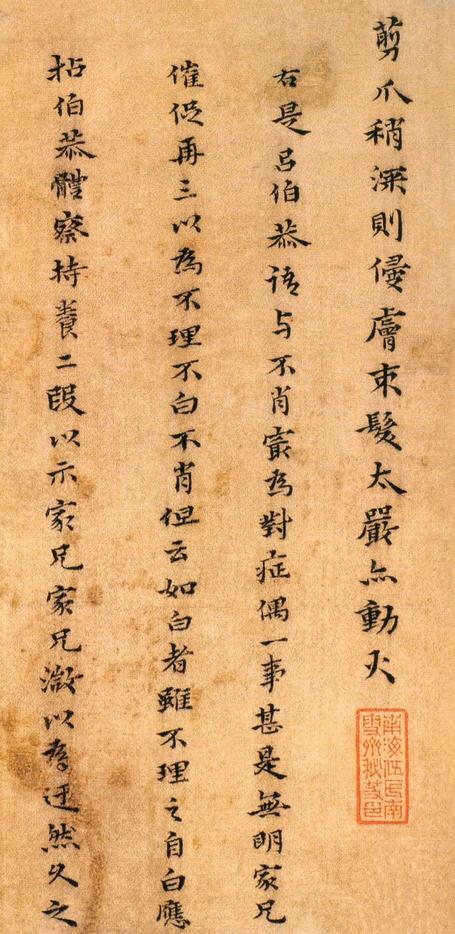 剪爪稍深則侵膚束髮太嚴亦動火
右是呂伯恭語与不肖㝡為對症偶一事甚是無明家兄
催促再三以為不理不白不肖但云如白者雖不理之自白應
拈伯恭體察持養二段以示家兄家兄澂以為迂然久之
南海伍氏南
雪齋秘笈印